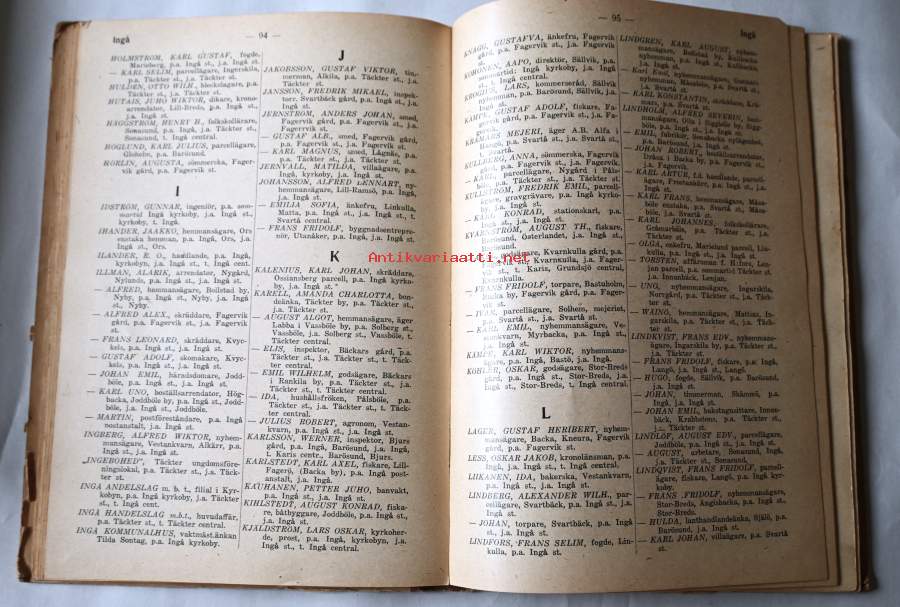 Ingå
— 94 —
HOLMSTRÖM, KARL GUSTAF, fogde,
Marieberg, p.a. Ingå st., j.a. Ingå st.
— KARL SELIM, parcellägare, Ingerskila,
p.a. Täckter st., j.a. Täckter st.
HULDEN, OTTO WILH., bleckslagare, p.a.
Täckter st., j.a. Täckter st.
HUTAIS, JUHO WIKTOR, dikare, krono-
arrendator, Lill-Breds, p.a. Ingå st.,
j.a. Ingå st.
HÄGGSTRÖM, HENRY B., folkskollärare,
Sonasund, p.a. Ingå j.a. Täckter st.,
Sonasund, t. Ingå central
HÖGLUND, KARL JULIUS, parcellägare,
Gloholm, p.a. Barösund.
HÖRLIN, AUGUSTA, sömmerska, Fager-
vik gård, p.a. Fagervik st.
I
IDSTRÖM, GUNNAR, ingeniör, p.a. som-
martid Ingå kyrkoby, j.a. Ingå st.,
kyrkoby, t. Ingå.
IHANDER, JAAKKO, hemmansägare, Ors
enstaka hemman, p.a. Ingå, Ors, j.a.
Ingå st., Ors.
ILANDER, R. O., handlande, p.a. Ingå,
kyrkoby, j.a. Ingå st., t. Ingå cent.
ILLMAN, ALARIK, arrendator, Nygård,
Nylands, p.a. Ingå st., j.a. Ingå st.
— ALFRED, hemmansägare, Bollstad by,
Nyby, p.a. Ingå st., Nyby, j.a. Ingå
st., Nyby.
— ALFRED ALEX., skräddare, Fagervik
gård, p.a. Fagervik st., j.a. Fagervik
st.
— FRANS LEONARD, skräddare, Kvyc-
kels, p.a. Ingå st., j.a. Ingå st.
— GUSTAF ADOLF, skomakare, Kvyc-
kels, p.a. Ingå st., j.a. Ingå st.
— JOHAN EMIL, häradsdomare, Jodd-
böle, p.a. Ingå st., j.a. Ingå st.
— KARL UNO, boställsarrendator, Hög-
backa, Joddböle by, p.a. Ingå st., Jodd-
böle, j.a. Ingå st., Joddböle.
— MARTIN, postföreståndare, p.a. Ingå
postanstalt, j.a. Ingå st.
INGBERG, ALFRED WIKTOR, nyhem-
mansägare, Vestankvarn, Alkärr, p.a.
Ingå st., j.a. Ingå st.
„INGEBOHED”, Täckter ungdomsföre-
ningslokal, p.a. Täckter st., j.a. Täck-
ter st.
INGÅ ANDELSLAG m. b. t., filial i Kyr-
kobyn, p.a. Ingå kyrkoby, j.a. Täckter
st., t. Ingå cent.
INGÅ HANDELSLAG m.b.t., huvudaffär,
p.a. Täckter st., t. Täckter central.
INGÅ KOMMUNALHUS, vaktmäst.änkan
Tilda Sontag, p.a. Ingå kyrkoby.
J
JAKOBSSON, GUSTAF VIKTOR, tim-
merman, Alkila, p.a. Täckter st., j.a.
Täckter st.
JANSSON, FREDRIK MIKAEL, inspek-
tor, Svartbäck gård, p.a. Ingå st., j.a.
Ingå st.
JERNSTRÖM, ANDERS JOHAN, smed,
Fagervik gård, p.a. Fagervik st., j.a.
Fagervik st.
— GUSTAF ALB., smed, Fagervik gård,
p.a. Fagervik st., j.a. Fagervik st.
— KARL MAGNUS, smed, Lågnäs, p.a.
Täckter st., j.a. Täckter st.
JERNVALL, MATILDA, villaägare, p.a.
Ingå, kyrkoby, j.a. Ingå st.
JOHANSSON, ALFRED LENNART, ny-
hemmansägare, Lill-Ramsö, p.a. Ingå,
j.a. Ingå st.
— EMILIA SOFIA, änkefru, Linkulla,
Malta, p.a. Ingå st., j.a. Ingå st., t.
Svartå central
— FRANS FRIDOLF, byggnadsentrepre-
nör, Utanåker, p.a. Ingå, j.a. Ingå st.
K
KALENIUS, KARL JOHAN, skräddare,
Ossiansberg parcell, p.a. Ingå kyrko-
by, j.a. Ingå st.
KARELL, AMANDA CHARLOTTA, bon-
deänka, Täckter by, p.a. Täckter st.,
j.a. Täckter st.
— AUGUST ALGOT, hemmansägare, äger
Labba i Vassböle by, p.a. Solberg st.,
Vassböle, j.a. Solberg st., Vassböle, t.
Täckter central.
— ELIS, inspektor, Bäckars gård, p.a.
Täckter st., j.a. Täckter st., t. Täck-
ter central.
— EMIL WILHELM, godsägare, Bäckars
i Rankila by, p.a. Täckter st., j.a.
Täckter st., t. Täckter central
— IDA, hushållsfröken, Pålsböle, p.a.
Täckter st., j.a. Täckter st., t. Täck-
ter central.
— JULIUS ROBERT, agronom, Vestan-
kvarn, p.a. Ingå st., j.a. Ingå st.
KARLSSON, WERNER, inspektor, Bjurs
gård, p.a. Ingå, Barösund, j.a. Ingå,
t. Karis centr., Barösund, Bjurs.
KARLSTEDT, KARL AXEL, fiskare, Lill-
Fagerö, (Backa by), p.a. Ingå post-
anstalt, j.a. Ingå.
KAUHANEN, PETTER JUHO, banvakt,
p.a. Ingå st., j.a. Ingå st.
KIHLSTEDT, AUGUST KONRAD, fiska-
re, båtbyggare, Joddböle, p.a. Ingå st.,
j.a. Ingå st.
KJÄLDSTRÖM, LARS OSKAR, kyrkoher-
de, prost, p.a. Ingå, kyrkobyn, j.a.
Ingå st., t. Ingå central.
— 95 —
Ingå
KNAGG, GUSTAFVA, änkefru, Fagervik
gård, p.a. Fagervik st., j.a. Fagervik
st.
KOHONEN, AAPO, direktör, Sällvik, p.a.
sommartid: Ingå kyrkoby, j.a. Ingå
st., t. Ingå central.
KROGIUS, LARS, kommerseråd, Sällvik
nyhemman, p.a. Barösund, Sällvik, j.a.
Ingå st.
GUSTAF ADOLF, fiskare, Fa-
gervik gård, p.a. Fagervik st., j.a. Fa-
gervik st.
KRÄMARS MEJERI, äger A.B. Alfa i
Hangö, p.a. Svartå st., j.a. Svartå st.,
t. Svartå
KULLBERG, ANNA, sömmerska, Fagervik
gård, p.a. Fagervik st., j.a. Fagervik.
— KARL, parcellägare, Nygård i Påls-
böle, p.a. Täckter st., j.a. Täckter st.
KULLSTRÖM, FREDRIK EMIL, parcell-
ägare, gravgrävare, p.a. Ingå kyrko-
by, j.a. Ingå st.
— KARL KONRAD, stationskarl, p.a.
Ingå st., j.a. Ingå st.
KVARNSTRÖM, AUGUST TH., fiskare,
Barösund, Österlandet, j.a. Ingå st.,
Barösund.
Kvarnkulla gård, p.a.
Ingå st., Kvarnkulla, j.a. Fager-
vik st., t. Karis, Grundsjö central,
Kvarnkulla.
— FRANS FRIDOLF, torpare, Bastuholm,
Backa by, Fagervik gård, p.a. Fager-
vik st.
— IVAR, parcellägare, Solhem, mejerist,
p.a. Svartå st., j.a. Svartå st.
— KARL EMIL, nyhemmansägare, Ve-
stankvarn, Myrbacka, p.a. Ingå st.,
j.a. Ingå st.
KÄMPE, KARL WIKTOR, nyhemmans-
ägare, p.a. Ingå, Bastö, j.a. Ingå.
KÖHLER, OSKAR, godsägare, Stor-Breds
gård, p.a. Ingå st., Stor-Breds, j.a.
Ingå st., Stor-Breds, t. Ingå central.
L
LAGER, GUSTAF HERIBERT, nyhem-
mansägare, Backa, Kneura, Fagervik
gård, p.a. Fagervik st.
LESS, OSKAR JAKOB, kronolänsman, p.a.
Ingå st., j.a. Ingå st., t. Ingå central.
LIIKANEN, IDA, bakerska, Vestankvarn,
p.a. Ingå st., j.a. Ingå st.
LINDBERG, ALEXANDER WILH., par-
cellägare, Svartbäck, p.a. Ingå st., j.a.
Ingå st.
— JOHAN, torpare, Svartbäck, p.a. Ingå
st., j.a. Ingå st.
LINDFORS, FRANS SELIM, fogde, Lin-
kulla, p.a. Ingå st.
LINDGREN, KARL AUGUST, nyhem-
mansägare, Bollstad by, Kullbacka
nyhemman, p.a. Ingå st., Kullbacka,
j.a. Ingå st.
— Karl Emil, nyhemmansägare, Gunnars
nyhemman, Måsaböle, p.a. Svartå st.,
j.a. Svartå st.
— KARL KONSTANTIN, skräddare, Kri-
mars, p.a. Svartå st.
LINDHOLM, ALFRED SEVERIN, hem-
mansägare, Olls i Buggböle by, Bygg-
böle, p.a. Ingå st., j.a. Ingå st.
— EMIL, fabrikör, Senaholm nylägenhet,
p.a. Ingå st., j.a. Ingå st.
— JOHAN ROBERT, boställsarrendator,
Dykas i Backa by, p.a. Fagervik st.,
j.a. Fagervik st.
— KARL ARTUR, f.d. hemman, parcell-
ägare, p.a. Ingå st., j.a.
Ingå st.
— KARL FRANS, hemmansägare, Måsa-
böle enstaka, p.a. Svartå st., Måsa-
böle, j.a. Svartå st.
— KARL JOHANNES, folkskollärare,
Gråmarböle, p.a. Täckter st., j.a.
Täckter st.
— OLGA, änkefru, Marielund parcell, Lin-
kulla, p.a. Ingå st., j.a. Ingå st.
— TORSTEN, affärsman f. H:fors, Len-
jan parcell, p.a. sommartid Täckter st.,
j.a. Innanbäck, Lenjan.
— UNO, nyhemmansägare, Ingarskila,
Norrgård, p.a. Täckter st., j.a. Täck-
ter st.
— WÄINÖ, hemmansägare, Mattians, In-
garskila, p.a. Täckter st., j.a. Täckter
st.
LINDKVIST, FRANS EDV., nyhemmans-
ägare, Ingarskila by, p.a. Täckter st.,
j.a. Täckter st.
— FRANS FRIDOLF, fiskare, p.a. Ingå,
Langö, j.a. Ingå st., Langö.
— HUGO, fogde, Sällvik, p.a. Barösund,
j.a. Ingå st.
— JOHAN, timmerman, Skämsö, p.a.
Ingå, j.a. Ingå st.
— JOHAN EMIL, backstugusittare, Innan-
bäck, Krabbstens, p.a. Täckter st.,
j.a. Täckter st.
LINDLÖF, AUGUST EDV., parcellägare,
Joddböle, p.a. Ingå st., j.a. Ingå st.
— AUGUST, arbetare, Sonasund, Ingå,
j.a. Täckter st., Sonasund,
LINDQVIST, FRANS FRIDOLF, parcell-
ägare, fiskare, Langö, p.a. Ingå kyr-
koby.
— FRANS FRIDOLF, nyhemmansägare,
Stor-Breds, Ängisbacka, p.a. Ingå st.,
Stor-Breds.
— HULDA, lanthandlandeänka, Själö, p.a.
Barösund, j.a. Ingå st.
— KARL JOHAN, villaägare, p.a. Svartå
st.
Antikvariaatti.net